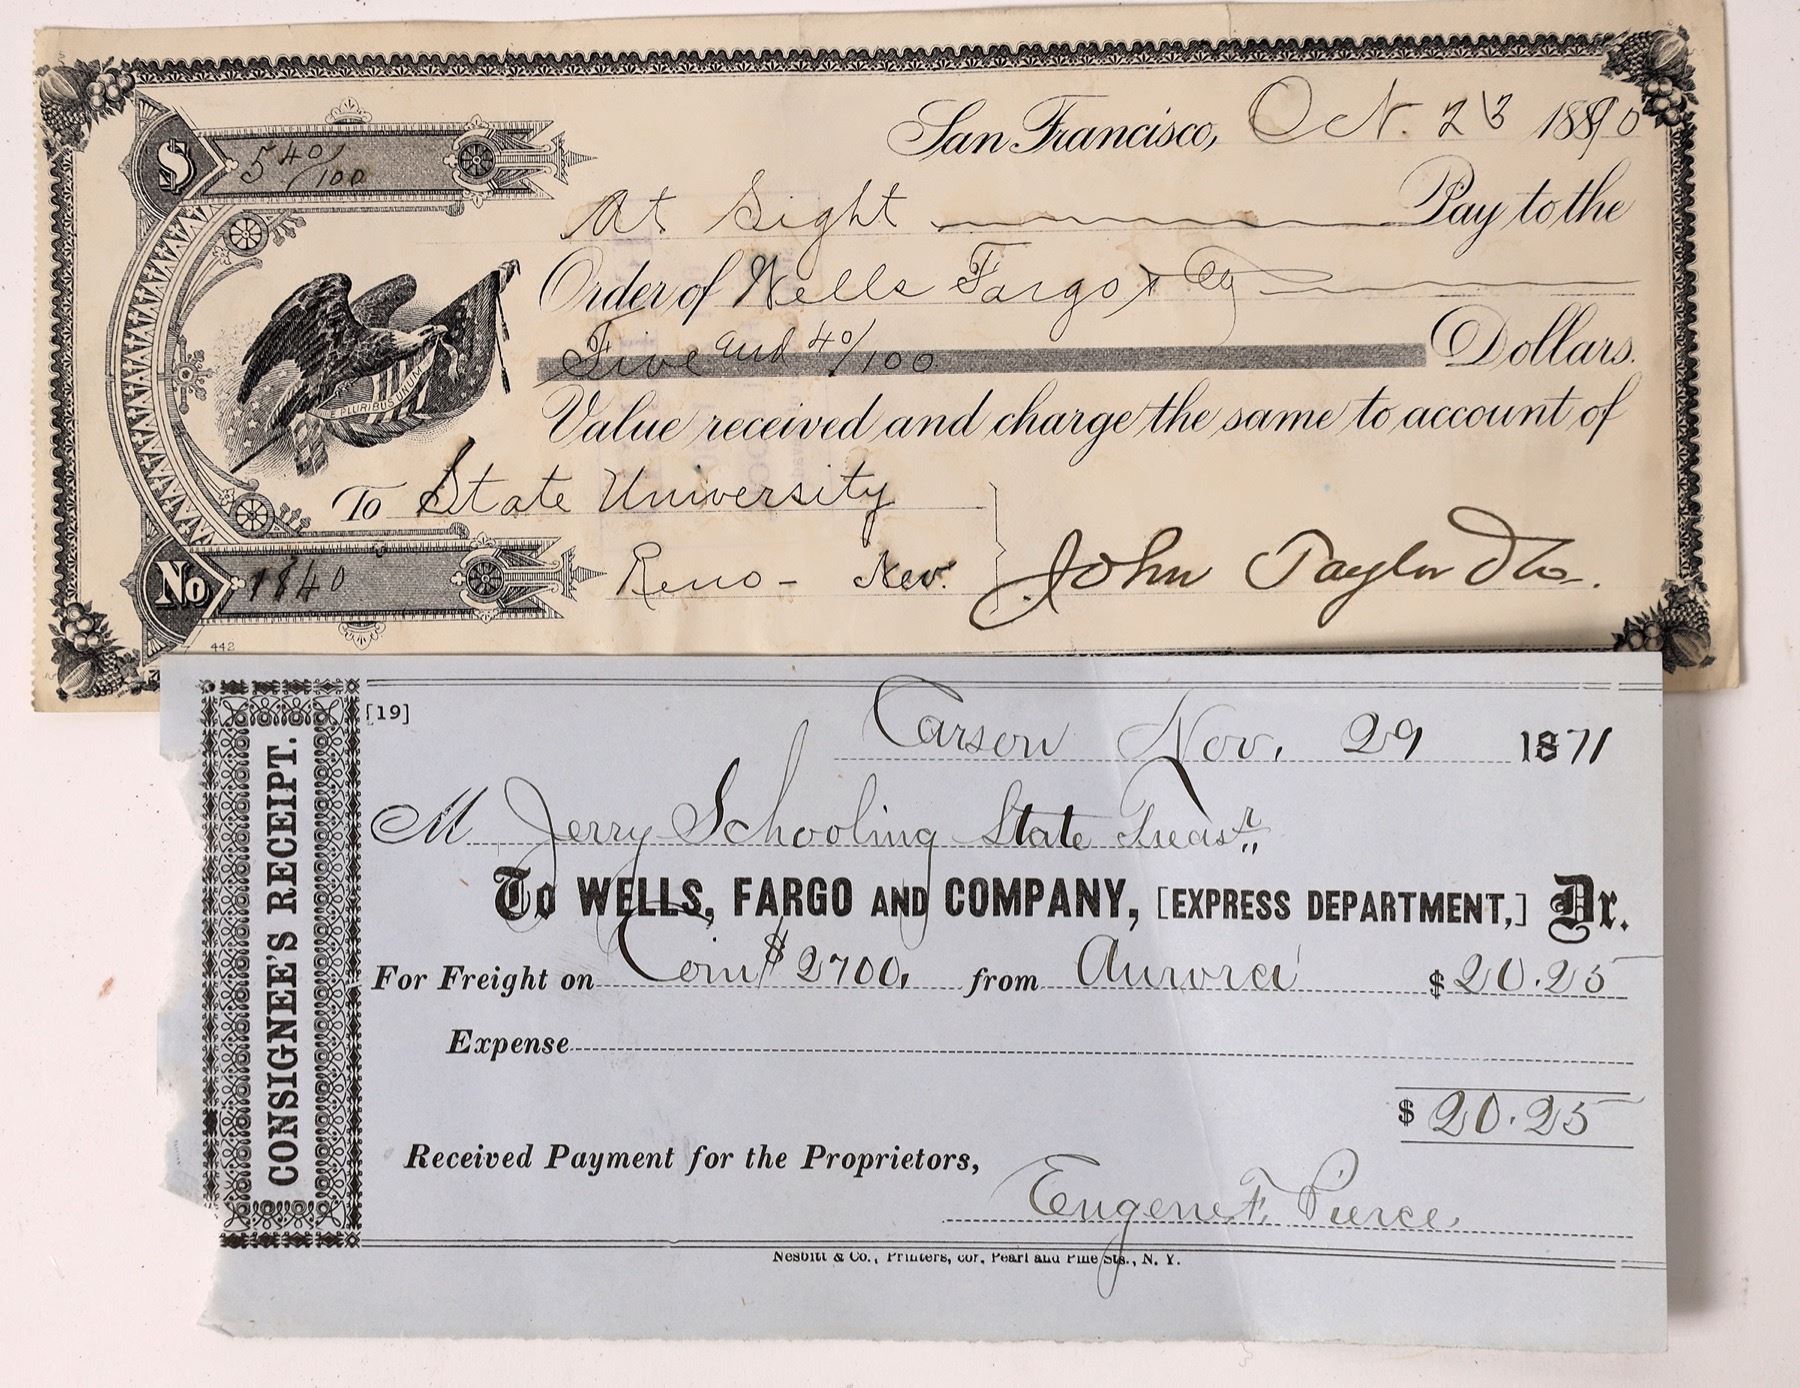 San Francisco, Oct. 23 1890
$ 5 40/100
At Sight Pay to the
Order of Wells Fargo & Co
Five and 40/100 Dollars.
E PLURIBUS UNUM
Value received and charge the same to account of
To State University
No 1840 Reno - Nev. John Taylor & Co.
442
CONSIGNEE'S RECEIPT.
[19]
Carson Nov. 29 1871
M Jerry Schooling State Treasr
To WELLS, FARGO AND COMPANY, [EXPRESS DEPARTMENT,] Dr.
For Freight on Coin $2700, from Aurora $20.25
Expense
$20.25
Received Payment for the Proprietors,
Eugene F. Pierce.
Nesbitt & Co., Printers, cor. Pearl and Pine Sts., N. Y.